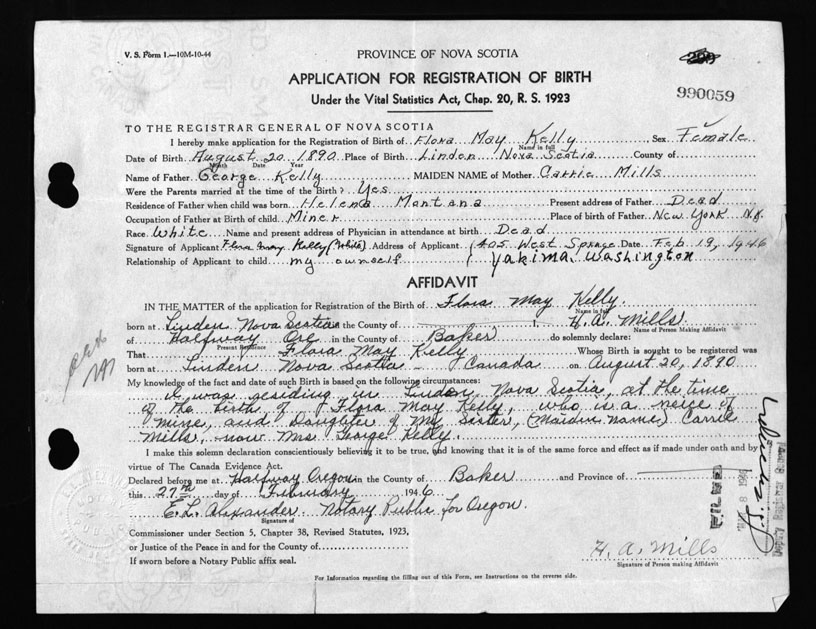 V. S. Form 1.—10M-10-44
PROVINCE OF NOVA SCOTIA
APPLICATION FOR REGISTRATION OF BIRTH
Under the Vital Statistics Act, Chap. 20, R. S. 1923
990059
TO THE REGISTRAR GENERAL OF NOVA SCOTIA
I hereby make application for the Registration of Birth of Flora May Kelly Sex Female
Name in full
Date of Birth August 20 1890 Place of Birth Linden Nova Scotia County of
Month Date Year
Name of Father George Kelly MAIDEN NAME of Mother Carrie Mills
Were the Parents married at the time of the Birth? Yes
Residence of Father when child was born Helena Montana Present address of Father Dead
Occupation of Father at Birth of child Miner Place of birth of Father New York
Race White Name and present address of Physician in attendance at birth Dead
Signature of Applicant Flora May Kelly (White) Address of Applicant 405 West Sprage Date Feb 19, 1946
Relationship of Applicant to child my ownself Yakima, Washington
AFFIDAVIT
IN THE MATTER of the application for Registration of the Birth of Flora May Kelly
Name in full
born at Linden Nova Scotia in the County of I, H. A. Mills
Name of Person Making Affidavit
of Halfway Ore in the County of Baker do solemnly declare:
Present Residence
That Flora May Kelly Whose Birth is sought to be registered was
born at Linden Nova Scotia - Canada on August 20, 1890
My knowledge of the fact and date of such Birth is based on the following circumstances:
I was residing in Linden, Nova Scotia, at the time
of the birth of Flora May Kelly, who is a neice of
mine, and Daughter of My Sister, (Maiden name) Carrie
Mills, now Mrs. George Kelly.
I make this solemn declaration conscientiously believing it to be true, and knowing that it is of the same force and effect as if made under oath and by
virtue of The Canada Evidence Act.
Declared before me at Halfway Oregon in the County of Baker and Province of
this 27th day of Febuary 1946
E. L. Alexander Notary Public for Oregon.
Signature of
Commissioner under Section 5, Chapter 38, Revised Statutes, 1923,
or Justice of the Peace in and for the County of
If sworn before a Notary Public affix seal.
H. A. Mills
Signature of Person making Affidavit
For Information regarding the filling out of this Form, see Instructions on the reverse side.
FILED